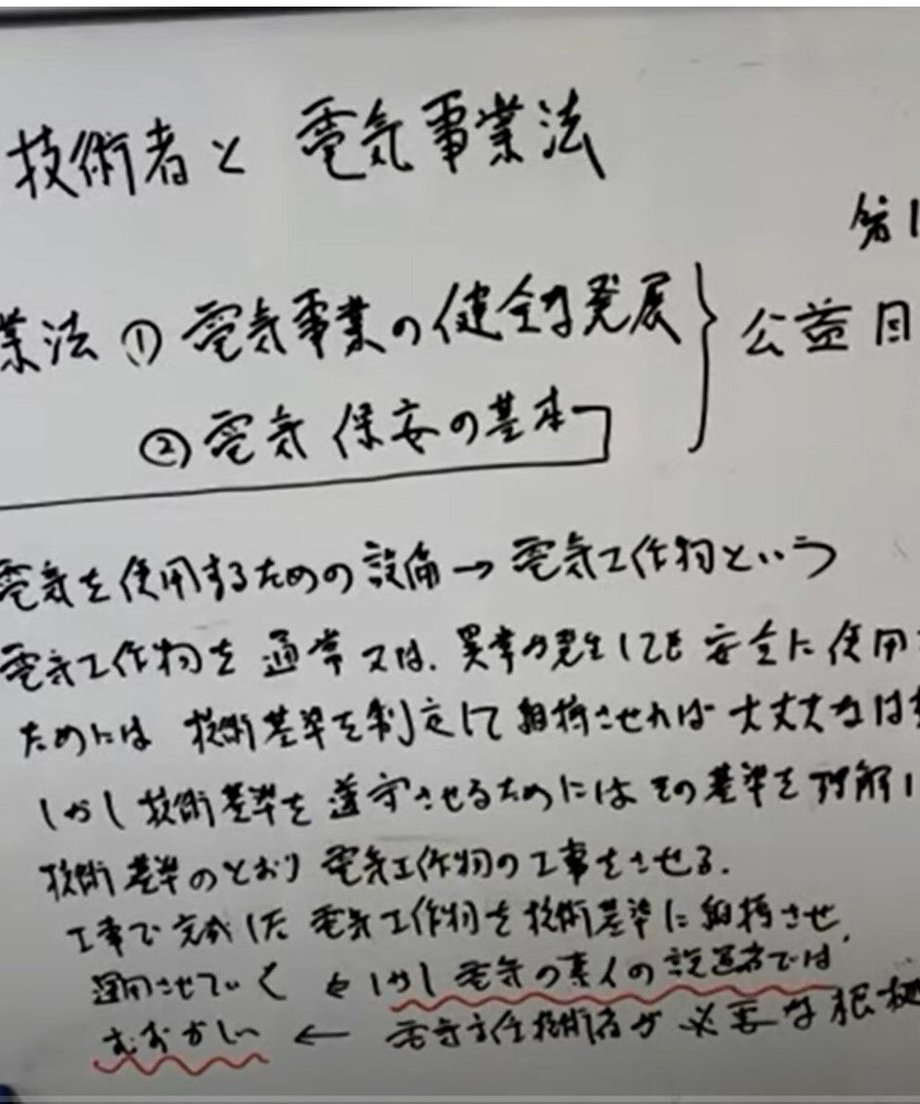 技術者と 電気事業法
第1
業法 ① 電気事業の健全な発展
公益目
② 電気保安の基本
電気を使用するための設備→電気工作物という
電気工作物を 通常又は、異常の発生しても 安全に使用
ためには 技術基準を制定して 維持させれば 大丈夫なはず
しかし技術基準を 遵守させるためにはその基準を理解し
技術基準のとおり 電気工作物の工事をさせる.
工事で完成した 電気工作物を技術基準に維持させ
運用させていく ← しかし電気の素人の設置者では,
むずかしい ← 電気主任技術者が必要な根拠